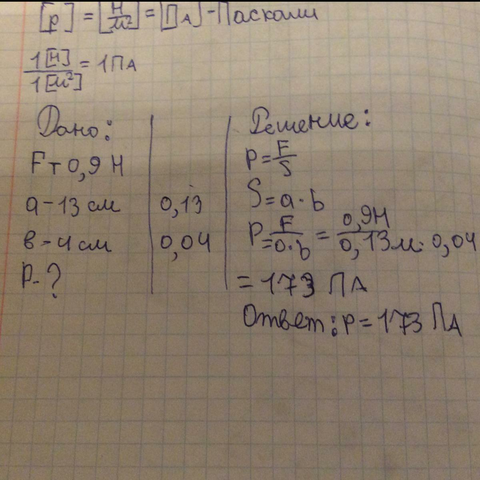 [p] = [Н/м²] = [ПА] - Паскали
1[Н]/1[м²] = 1 ПА
Дано:
Fт 0,9 Н
a - 13 см 0,13
в - 4 см 0,04
P - ?
Решение:
P = F/S
S = a · b
P = F/a·b = 0,9Н/0,13м · 0,04
= 173 ПА
Ответ: p = 173 ПА